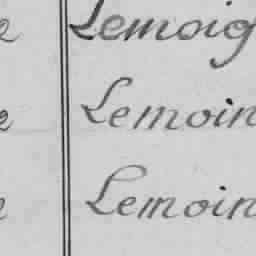 e Lemoig
e Lemoin
e Lemoin